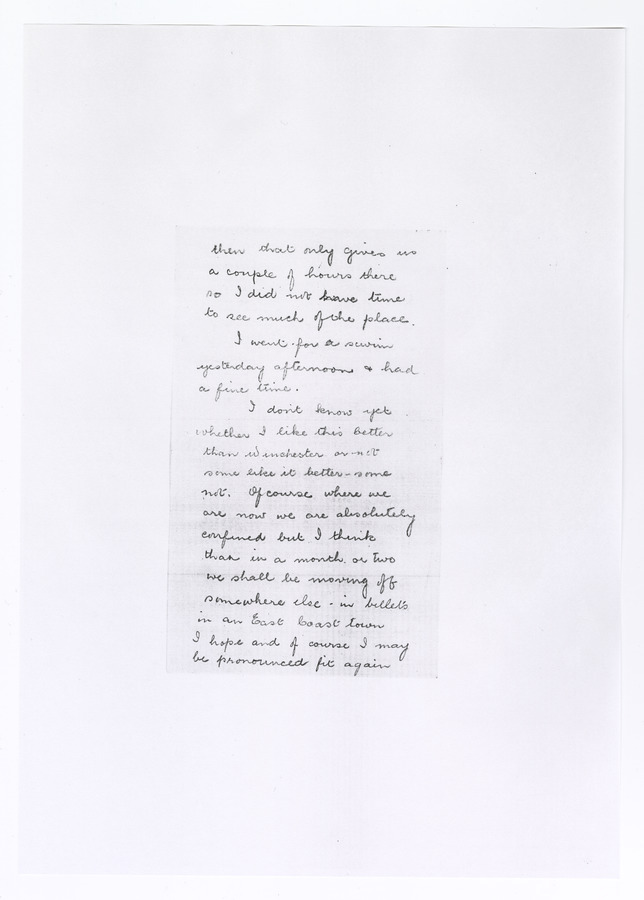 then that only gives us
a couple of hours there
so I did not have time
to see much of the place.
I went for a swim
yesterday afternoon & had
a fine time.
I don't know yet
whether I like this better
than Winchester or not
some like it better - some
not. Of course where we
are now we are absolutely
confined but I think
than in a month or two
we shall be moving off
somewhere else - in billets
in an East Coast town
I hope and of course I may
be pronounced fit again